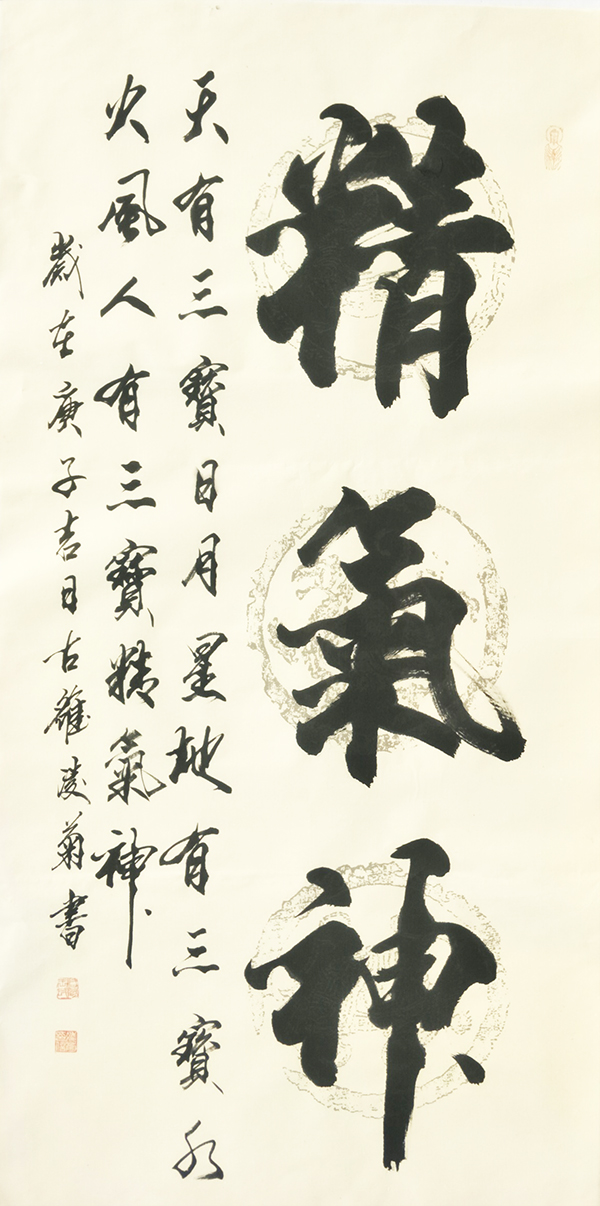 精氣神
天有三寶日月星地有三寶水
火風人有三寶精氣神
歲在庚子吉日古雒凌菊書